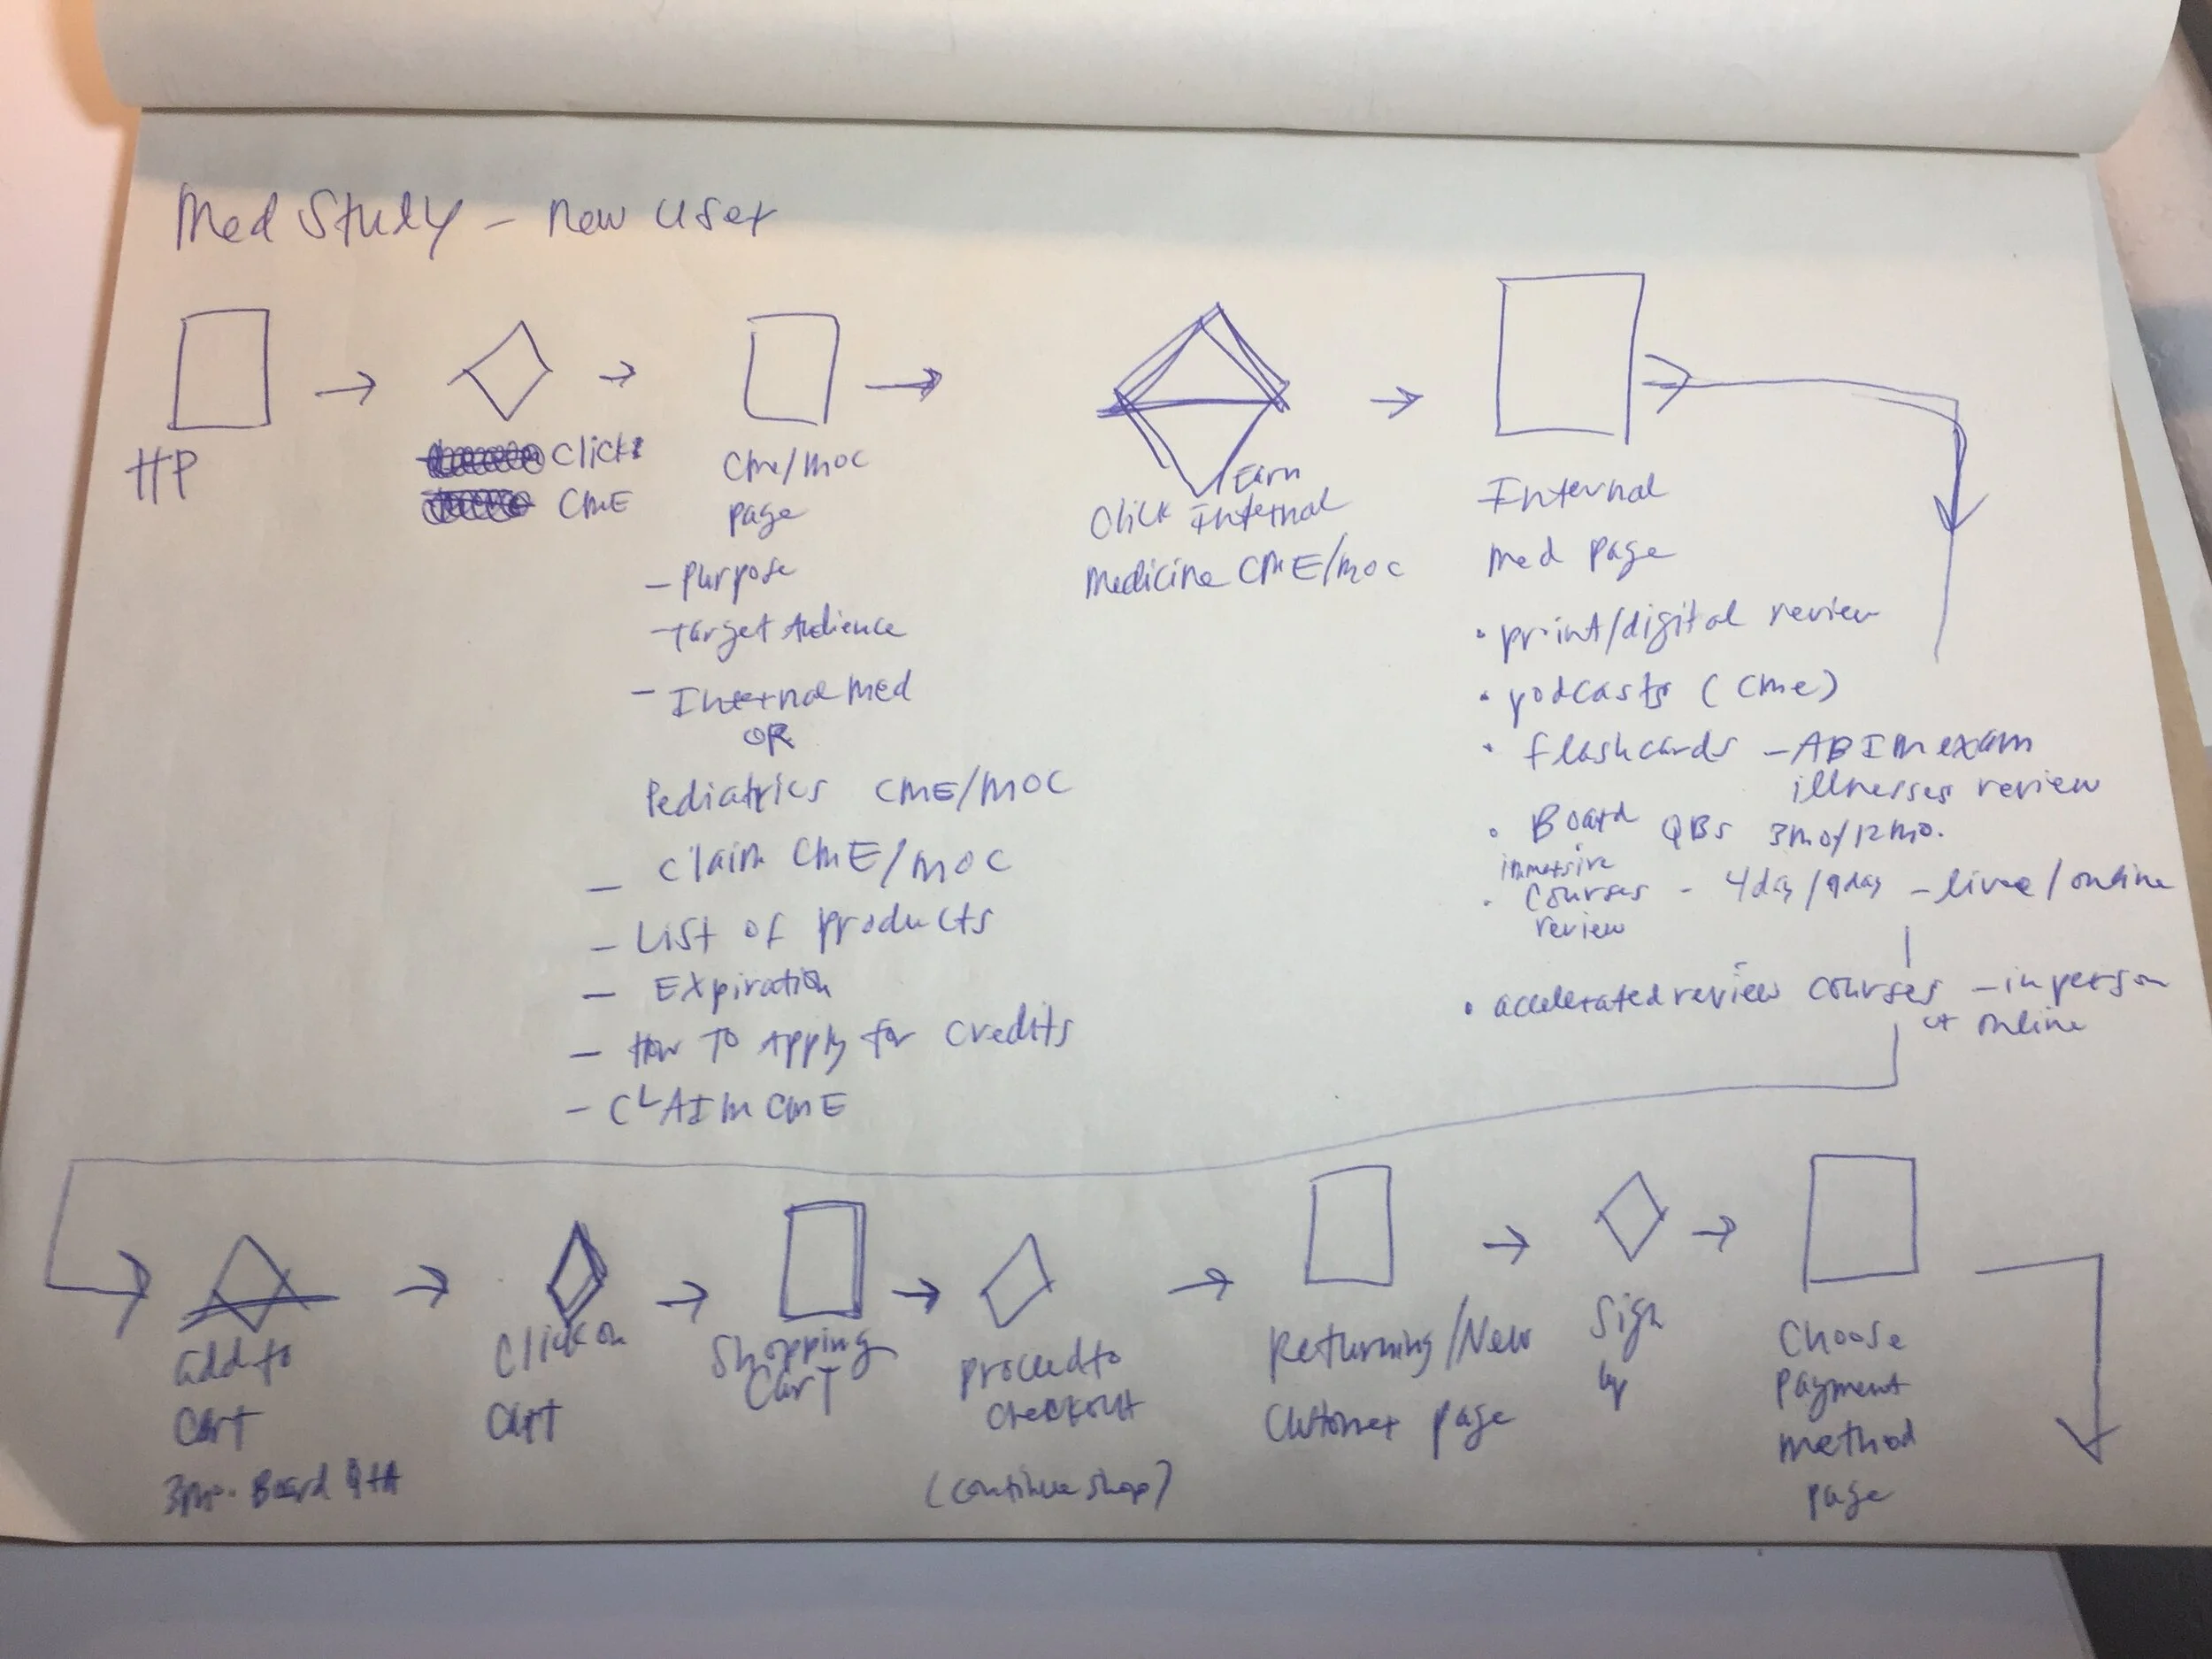 Med Study - New User
HP
Click
CME
CME/MOC
page
- Purpose
- Target Audience
- Internal Med
OR
Pediatrics CME/MOC
- Claim CME/MOC
- List of products
- Expiration
- How To Apply for credits
- CLAIM CME
Earn
Click Internal
Medicine CME/MOC
Internal
Med page
• print/digital review
• podcasts (CME)
• flashcards - ABIM exam
illnesses review
• Board QBs 3mo/12mo.
immersive
• Courses - 4day/9day - live/online
review
• accelerated review courses - in person
or online
add to
Cart
3mo. Board Q+A
Click on
Cart
Shopping
Cart
proceed to
checkout
(continue shop)
Returning/New
Customer page
Sign
up
Choose
payment
method
page